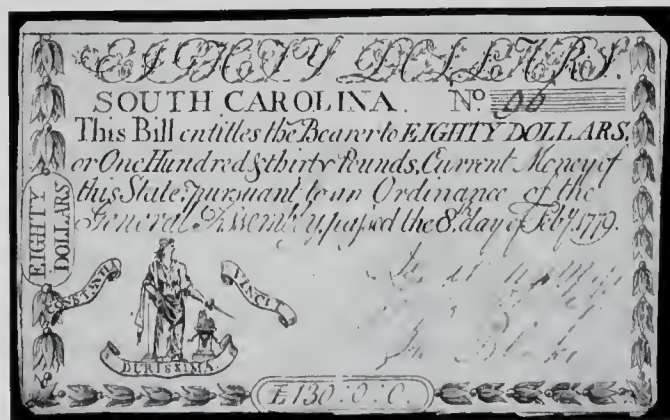 EIGHTY DOLLARS.
SOUTH CAROLINA. No. 96
This Bill entitles the Bearer to EIGHTY DOLLARS,
or One Hundred & thirty Pounds, Current Money of
this State, pursuant to an Ordinance of the
General Assembly, passed the 8th. day of Feby. 1779.
EIGHTY
DOLLARS
CONSTANTIA VINCIT
DURISSIMA.
£130:0:0.